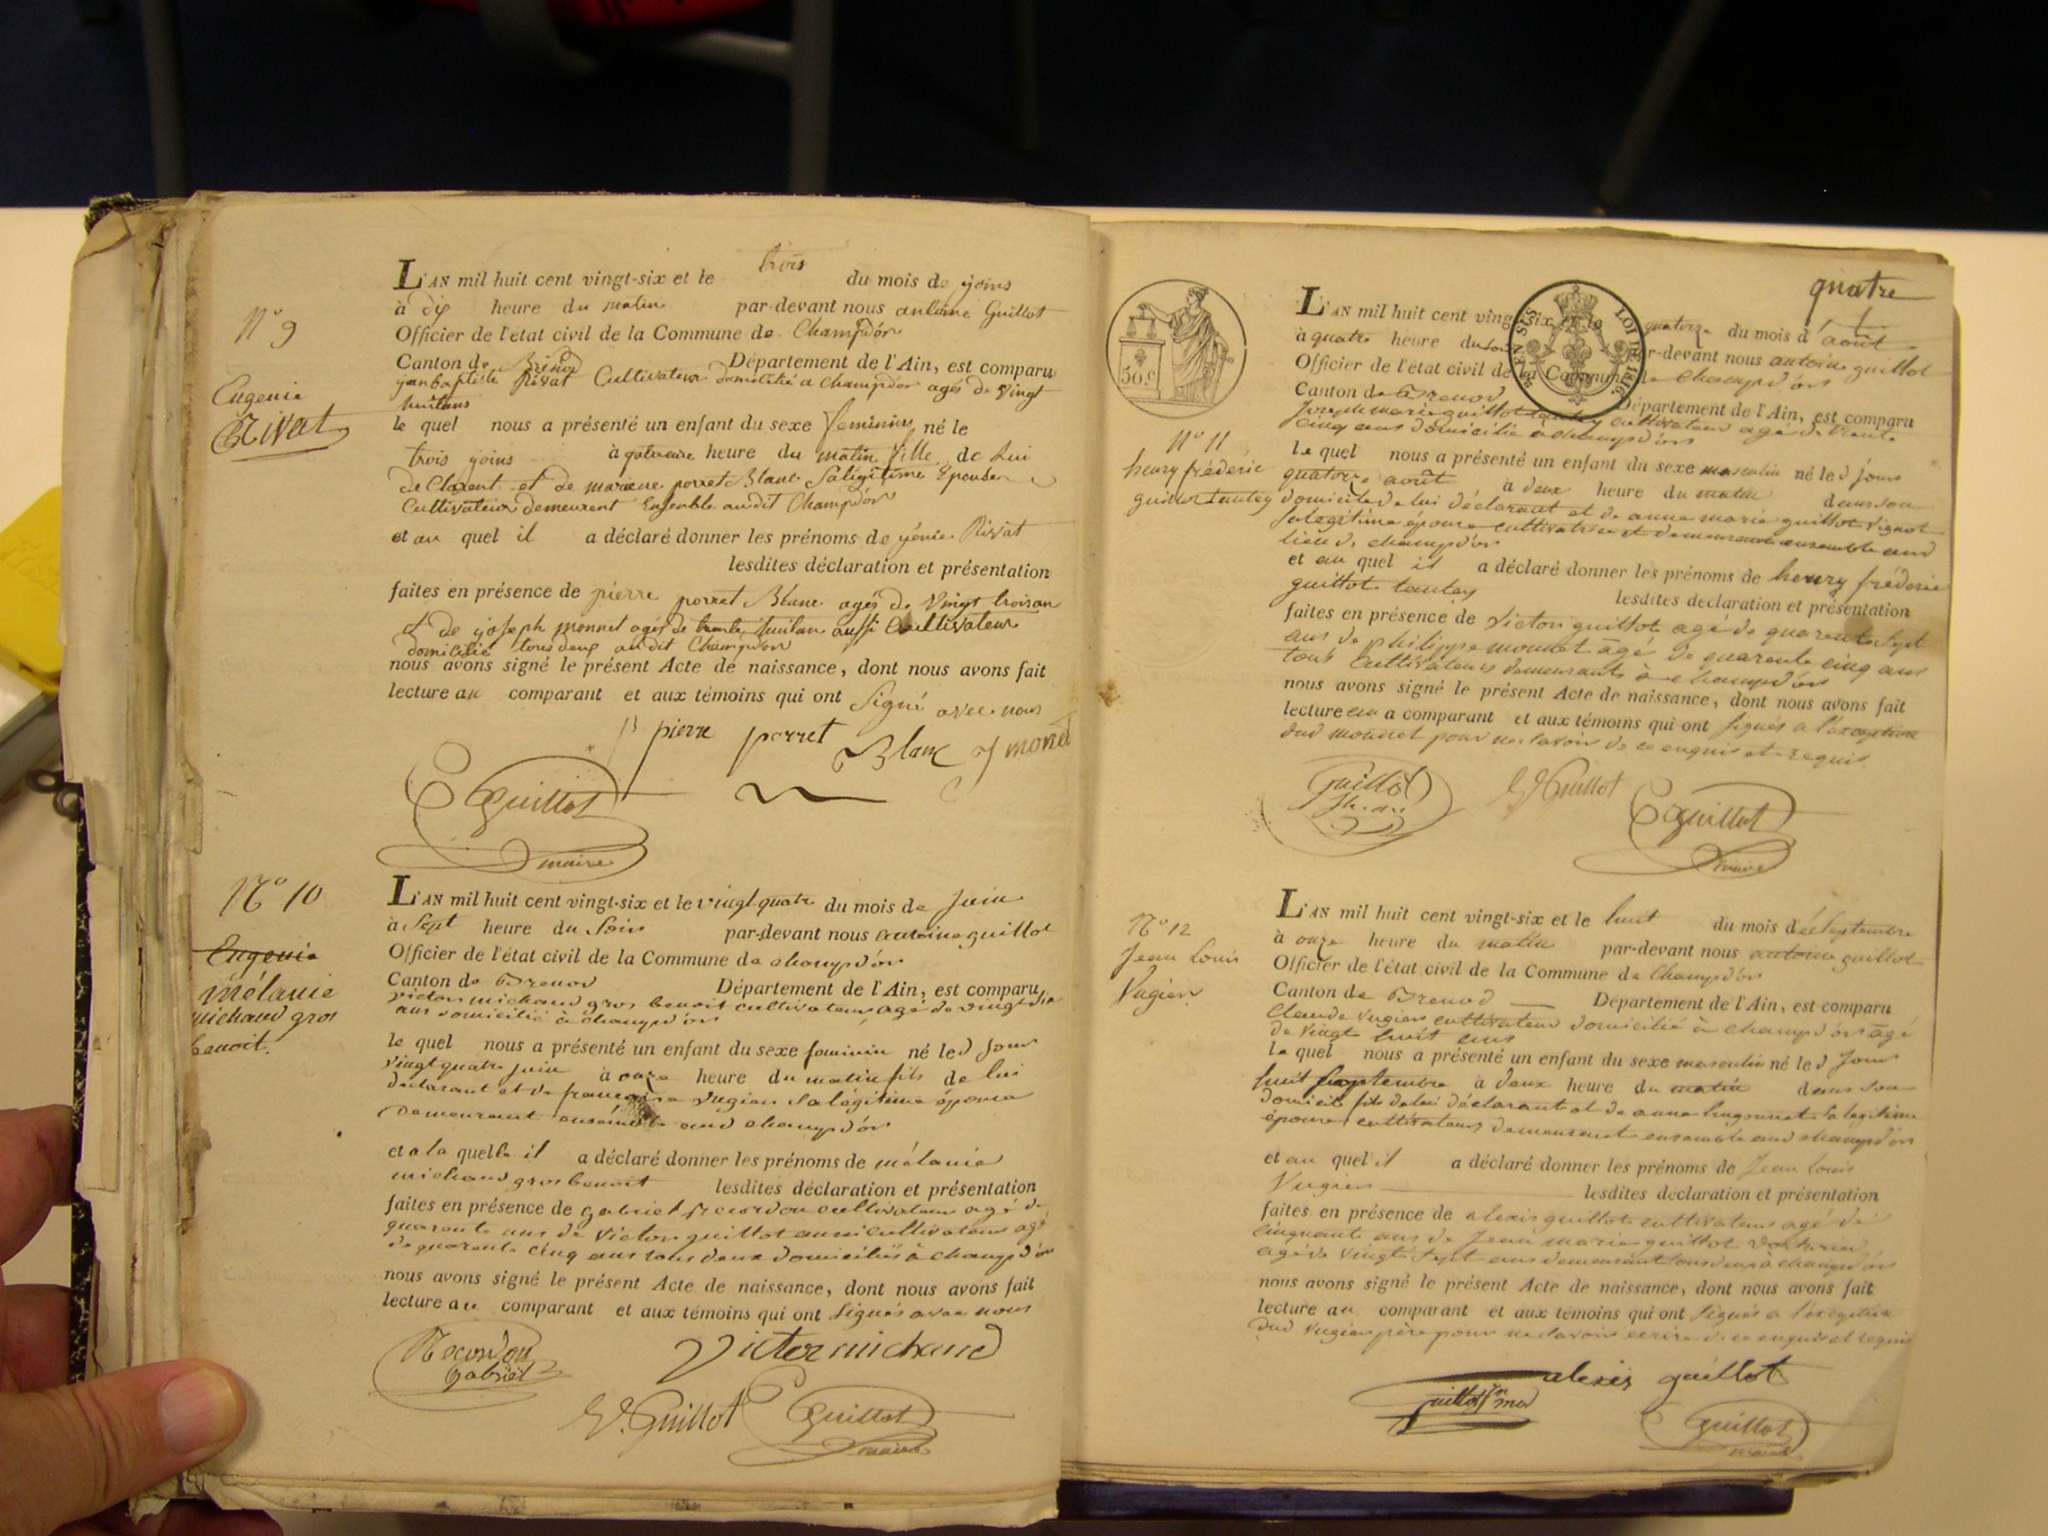 N° 9
Eugenie
Rivat
L'AN mil huit cent vingt-six et le trois du mois de joins
à dix heure du matin par-devant nous antoine Guillot
Officier de l'etat civil de la Commune de Champd'or
Canton de Brénod Département de l'Ain, est comparu
janbaptiste Rivat Cultivateur domicilié a Champdor agés de vingt
huitans
le quel nous a présenté un enfant du sexe feminins né le
trois joins à heure du matin fille de Lui
de Clarent et de porret Blanc Saligitime Epouse
Cultivateur demeurent Ensemble audit Champd'or
et au quel il a déclaré donner les prénoms de génie Rivat
lesdites déclaration et présentation
faites en présence de pierre porret Blanc agés de vingt troisan
et de joseph monnet agés de trente huitan aussi Cultivateur
domicilié tous deux audit Champdor
nous avons signé le présent Acte de naissance, dont nous avons fait
lecture au comparant et aux témoins qui ont Signé avec nous
pierre porret Blanc J monet
Guillot
maire
N° 10
Eugenie
mélanie
michaud gros
benoit.
L'AN mil huit cent vingt-six et le vingt quatre du mois de juin
à Sept heure du Soir par-devant nous antoine guillot
Officier de l'état civil de la Commune de champd'or
Canton de Brenod Département de l'Ain, est comparu
victor michaud gros benoit cultivateur agé de vingt six
ans domicilié à champd'or
le quel nous a présenté un enfant du sexe feminin né led jour
vingt quatre juin à onze heure du matin fils de lui
declarant et de francoise vugier sa legitime épouse
demeurant ensemble aud champd'or
et a la quelle il a déclaré donner les prénoms de mélanie
michaud gros benoit lesdites déclaration et présentation
faites en présence de gabriel recordon cultivateur agé de
quarente ans de victor guillot aussi cultivateur agé
de quarente cinq ans tous deux domiciliés à champd'or
nous avons signé le présent Acte de naissance, dont nous avons fait
lecture au comparant et aux témoins qui ont Signés avec nous
Recordon
gabriel
Victor michaud
V. Guillot
Guillot
maire
quatre
50 c
LOI DE 1816
N° 11
henry fréderic
guillot tantey
L'AN mil huit cent vingt-six et le quatorze du mois d'août
à quatre heure du soir par-devant nous antoine guillot
Officier de l'état civil de la Commune de champd'or
Canton de Brenod Département de l'Ain, est comparu
Joseph marie guillot tantey cultivateur agé de trente
cinq ans domicilié à champd'or
le quel nous a présenté un enfant du sexe masculin né led jour
quatorze août à deux heure du matin dans son
domicile de lui déclarant et de anne marie guillot vignot
sa legitime épouse cultivatrice et demeurant ensemble aud
lieu de champd'or
et au quel il a déclaré donner les prénoms de henry fréderic
guillot tantey lesdites declaration et présentation
faites en présence de victor guillot agé de quarente sept
ans de philippe monnet âgé de quarente cinq ans
tous cultivateurs demeurants à champd'or
nous avons signé le présent Acte de naissance, dont nous avons fait
lecture au a comparant et aux témoins qui ont signés a l'exception
dud monnet pour ne savoir de ce enquis et requis
Guillot
V Guillot
Guillot
maire
N° 12
Jean Louis
Vugier
L'AN mil huit cent vingt-six et le huit du mois de Septembre
à onze heure du matin par-devant nous antoine guillot
Officier de l'état civil de la Commune de Champd'or
Canton de Brenod Département de l'Ain, est comparu
Claude vugier cultivateur domicilié à champd'or agé
de vingt huit ans
le quel nous a présenté un enfant du sexe masculin né led Jour
huit septembre à deux heure du matin dans son
domicile fils de lui déclarant et de anne hugonnet sa legitime
épouse cultivateurs demeurant ensemble aud champd'or
et au quel il a déclaré donner les prénoms de Jean Louis
Vugier lesdites déclaration et présentation
faites en présence de alexis guillot cultivateur agé de
cinquante ans de Jean marie guillot
agé de vingt sept ans demeurant tous deux à champd'or
nous avons signé le présent Acte de naissance, dont nous avons fait
lecture au comparant et aux témoins qui ont signés a l'exception
dud vugier père pour ne savoir ecrire de ce enquis et requis
alexis guillot
guillot
Guillot
maire